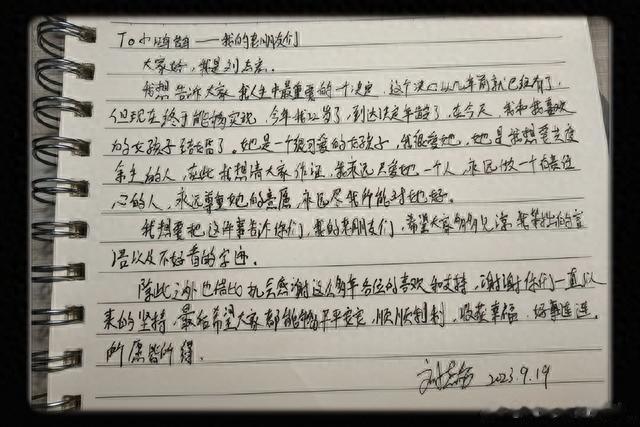 To小鸿鹄——我的老朋友们
大家好,我是刘志宏.
我想告诉大家我人生中最重要的一个决定,这个决心几年前就已经有了,
但现在终于能够实现,今年我22岁了,到达法定年龄了,在今天,我和我喜欢
的女孩子结婚了.她是一个很可爱的女孩子,我很爱她,她是我想要共度
余生的人,在此我想请大家作证,我永远只爱她一个人,永远做一个有责任
心的人,永远尊重她的意愿,永远尽我所能对她好.
我想要把这件事告诉你们,我的老朋友们,希望大家多多见谅我笨拙的言
语以及不好看的字迹.
除此之外也借此机会感谢这么多年各位的喜欢和支持,谢谢你们一直以
来的坚持,最后希望大家都能够平平安安,顺顺利利,收获幸福,好事连连,
所愿皆所得.
刘志宏 2023.9.19